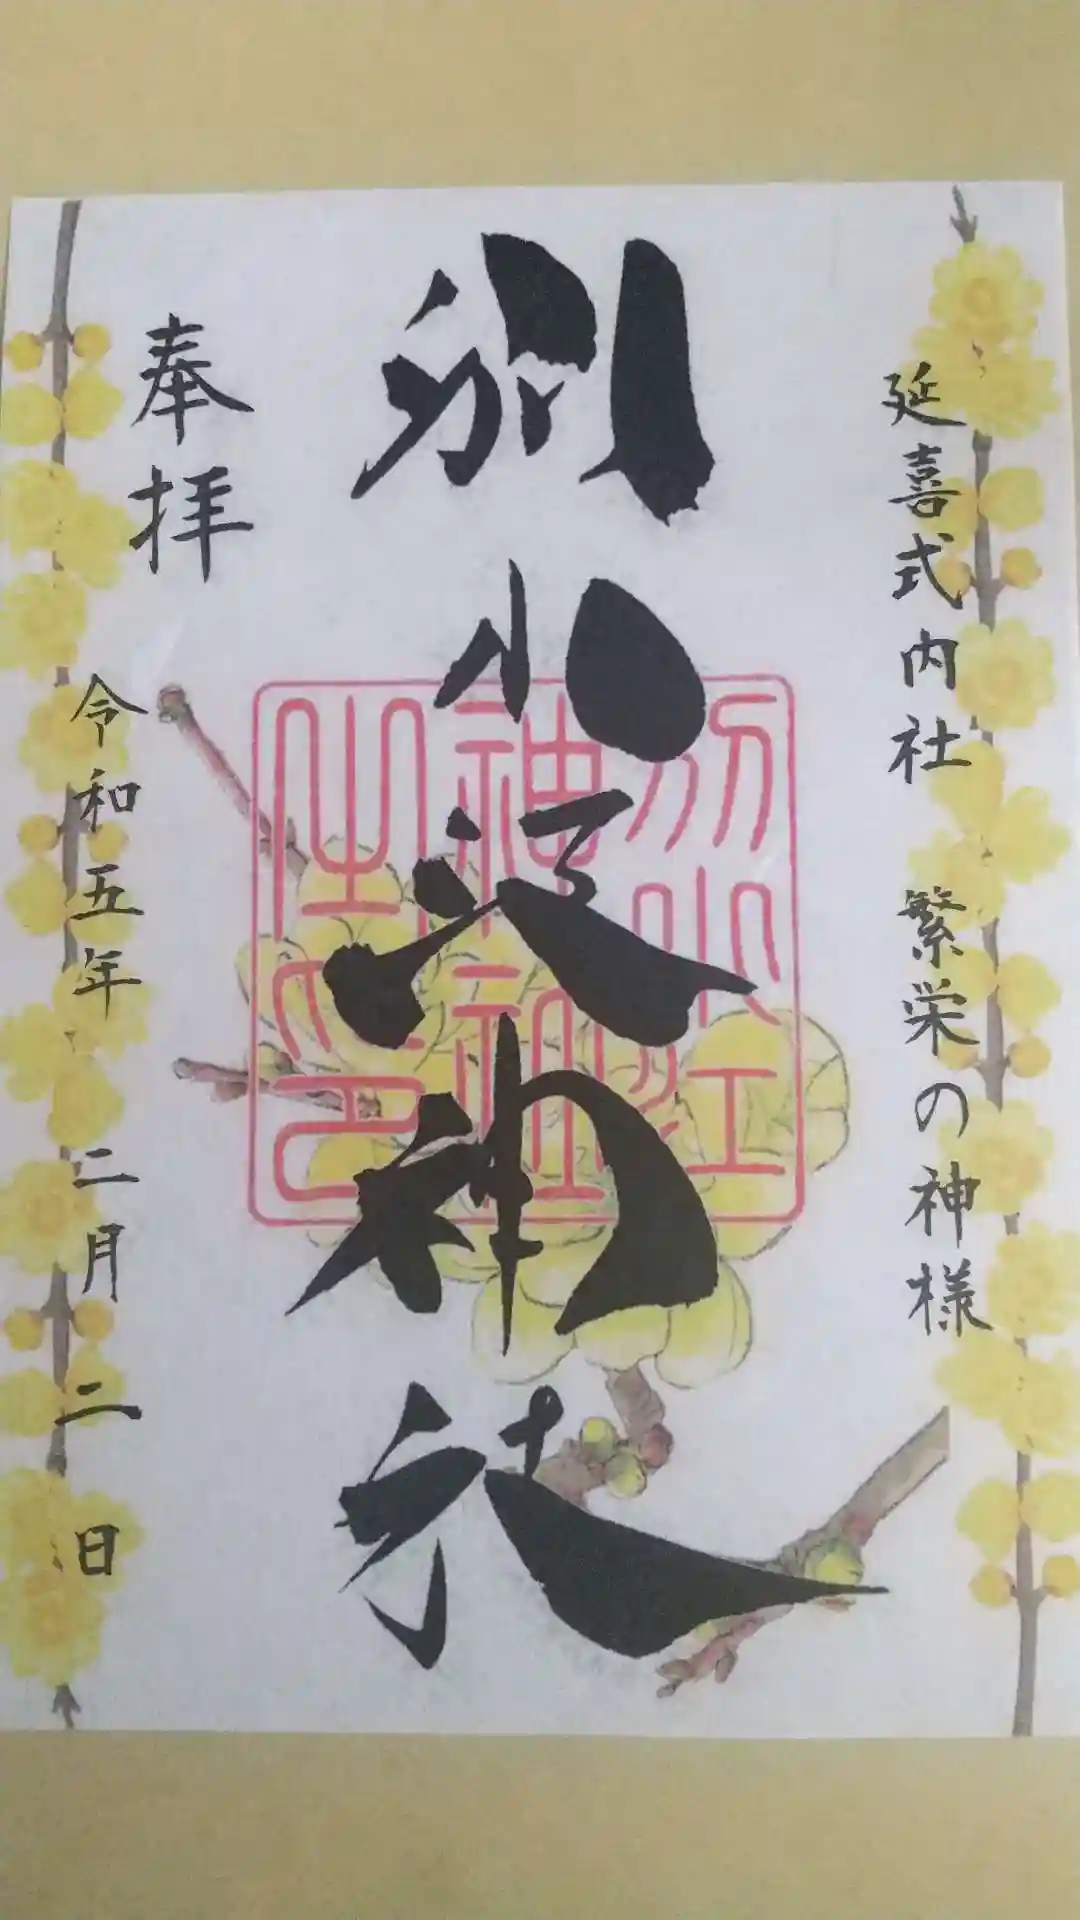 延喜式内社 繁栄の神様
別小江神社
別小江
神社
之印
奉拝
令和五年 二月 二日